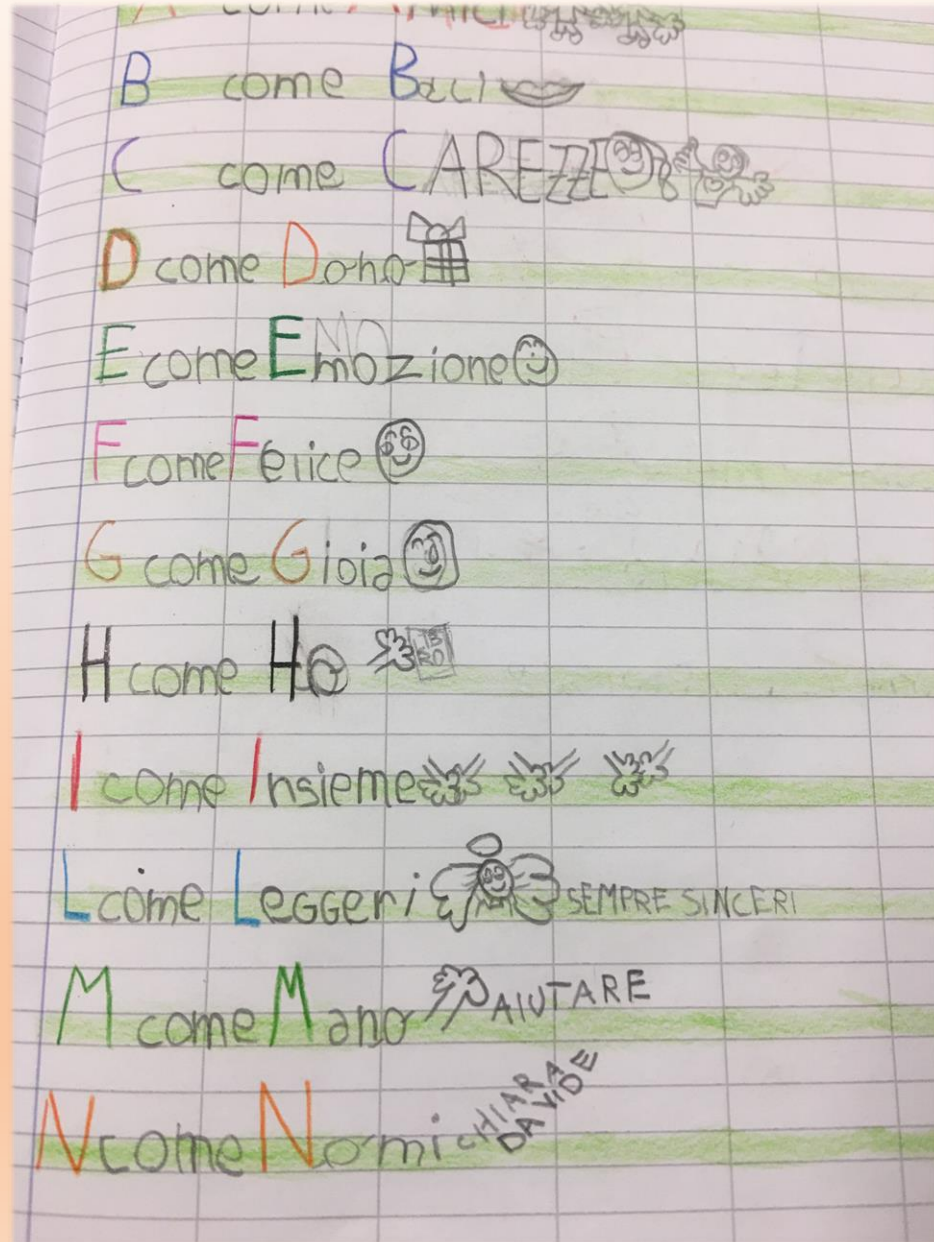 A come Amici
B come Baci
C come CAREZZE
D come Dono
E come Emozione
F come Felice
G come Gioia
H come Ho
I come Insieme
L come Leggeri SEMPRE SINCERI
M come Mano AIUTARE
N come Nomi CHIARA DAVIDE